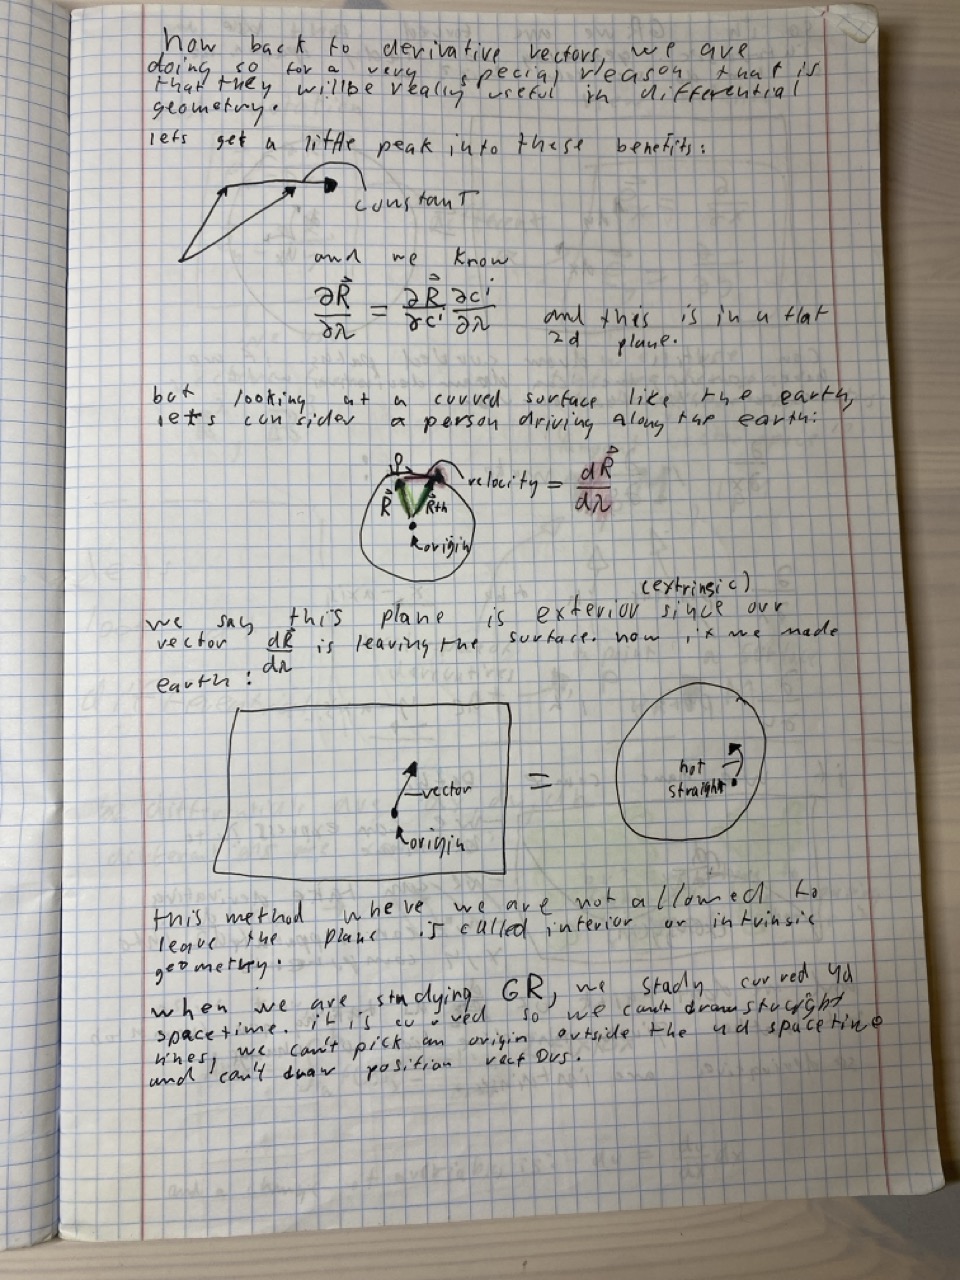 now back to derivative vectors, we are
doing so for a very special reason that is
that they willbe really useful in differential
geometry.
lets get a little peak into these benefits:
constant
and we know
∂R⃗/∂λ = ∂R⃗/∂cⁱ ∂cⁱ/∂λ and this is in a flat
2d plane.
but looking at a curved surface like the earth,
let's consider a person driving along the earth:
velocity = dR⃗/dλ
R⃗ R⃗+h
origin
(extrinsic)
we say this plane is exterior since our
vector dR⃗/dλ is leaving the surface. now if we made
earth:
vector
origin
=
not
straight
this method where we are not allowed to
leave the plane is called interior or intrinsic
geometry.
when we are studying GR, we study curved 4d
spacetime. it is curved so we can't draw straight
lines, we can't pick an origin outside the 4d spacetime
and can't draw position vectors.